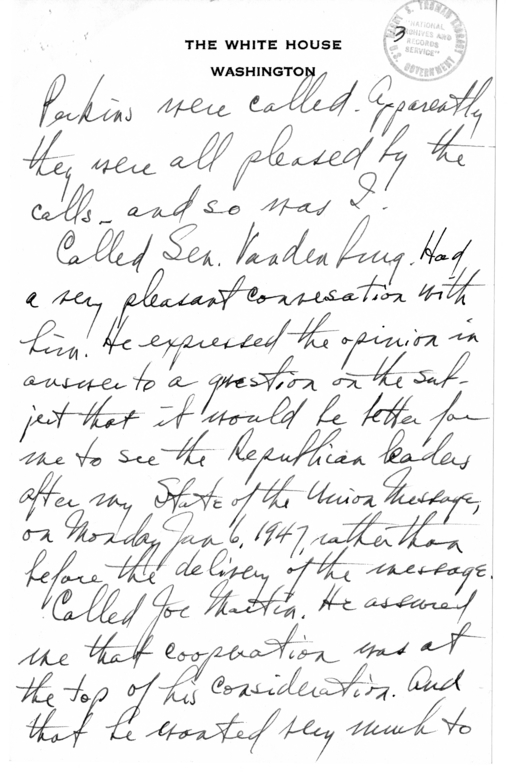 HARRY S. TRUMAN LIBRARY
"NATIONAL
ARCHIVES AND
RECORDS
SERVICE"
U.S. GOVERNMENT
3
THE WHITE HOUSE
WASHINGTON
Perkins were called. Apparently
they were all pleased by the
calls – and so was I.
Called Sen. Vandenburg. Had
a very pleasant convesation with
him. He expressed the opinion in
answer to a question on the sub-
ject that it would be better for
me to see the Republican leaders
after my State of the Union Message,
on Monday Jan 6, 1947, rather than
before the delivery of the message.
Called Joe Martin. He assured
me that cooperation was at
the top of his consideration. And
that he wanted very much to